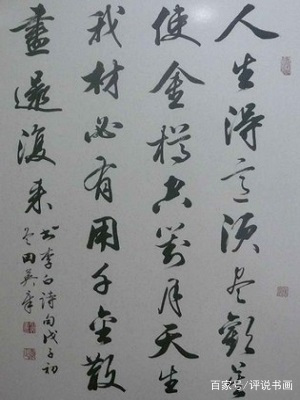 人生得意须尽欢莫
使金樽空对月天生
我材必有用千金散
尽还复来
书李白诗句戊子初
冬田英章
百家号/评说书画